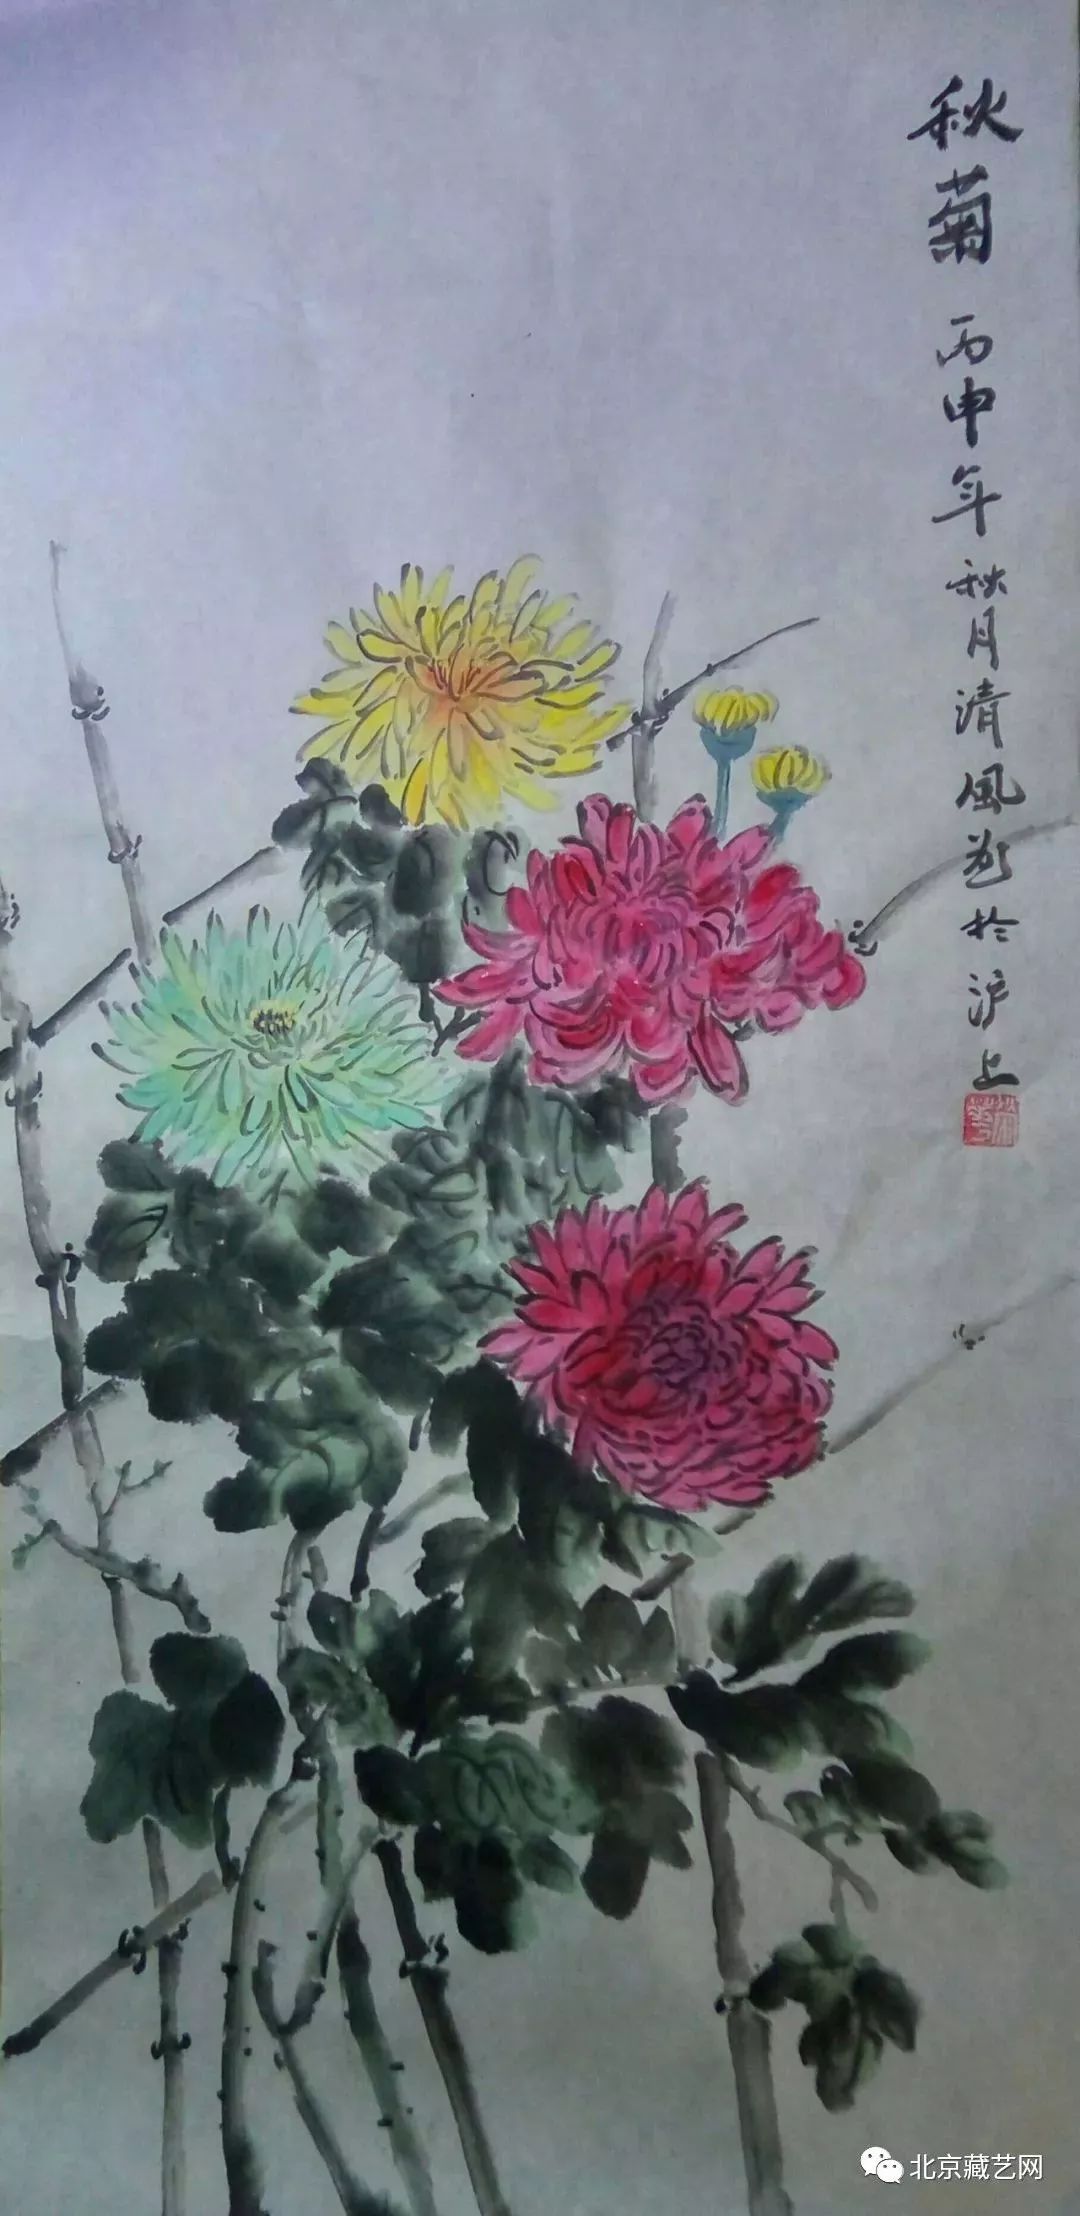 秋菊 丙申年秋月清風 於沪上
北京藏艺网